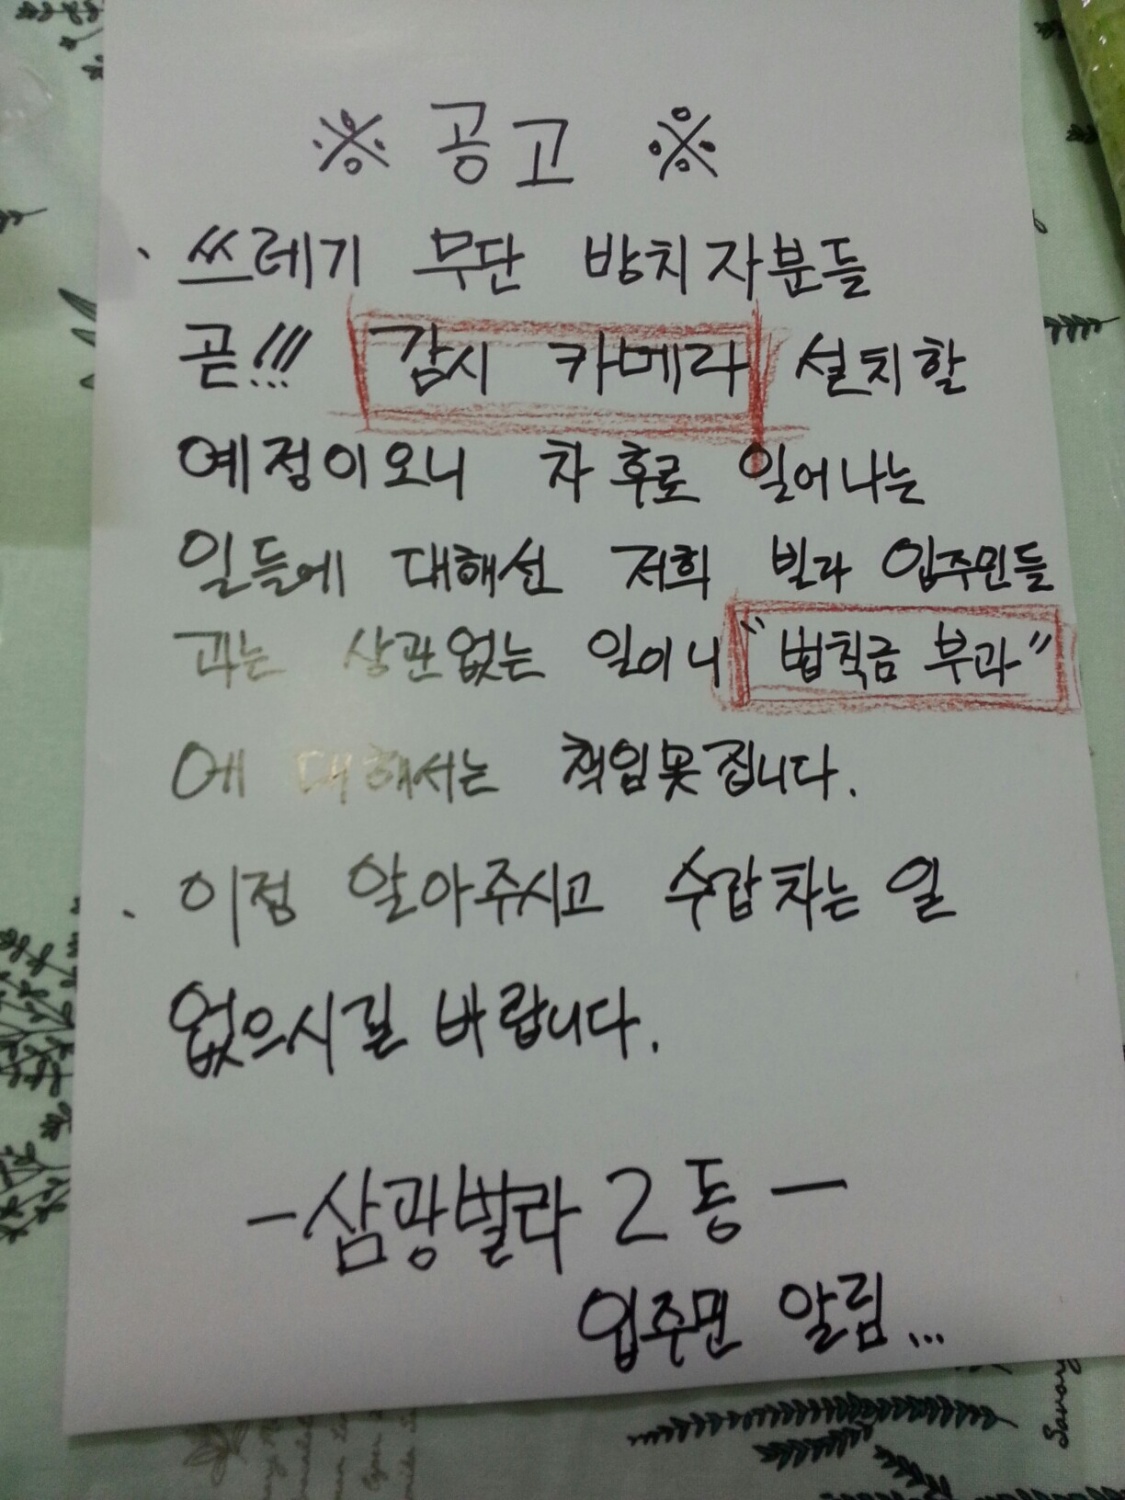 ※ 공고 ※
쓰레기 무단 방치자분들
곧!!! 감시 카메라 설치할
예정이오니 차후로 일어나는
일들에 대해선 저희 빌라 입주민들
과는 상관없는 일이니 "법칙금 부과"
에 대해서는 책임못집니다.
이점 알아주시고 수랍차는 일
없으시길 바랍니다.
-삼광빌라 2동-
입주민 알림...
Savory